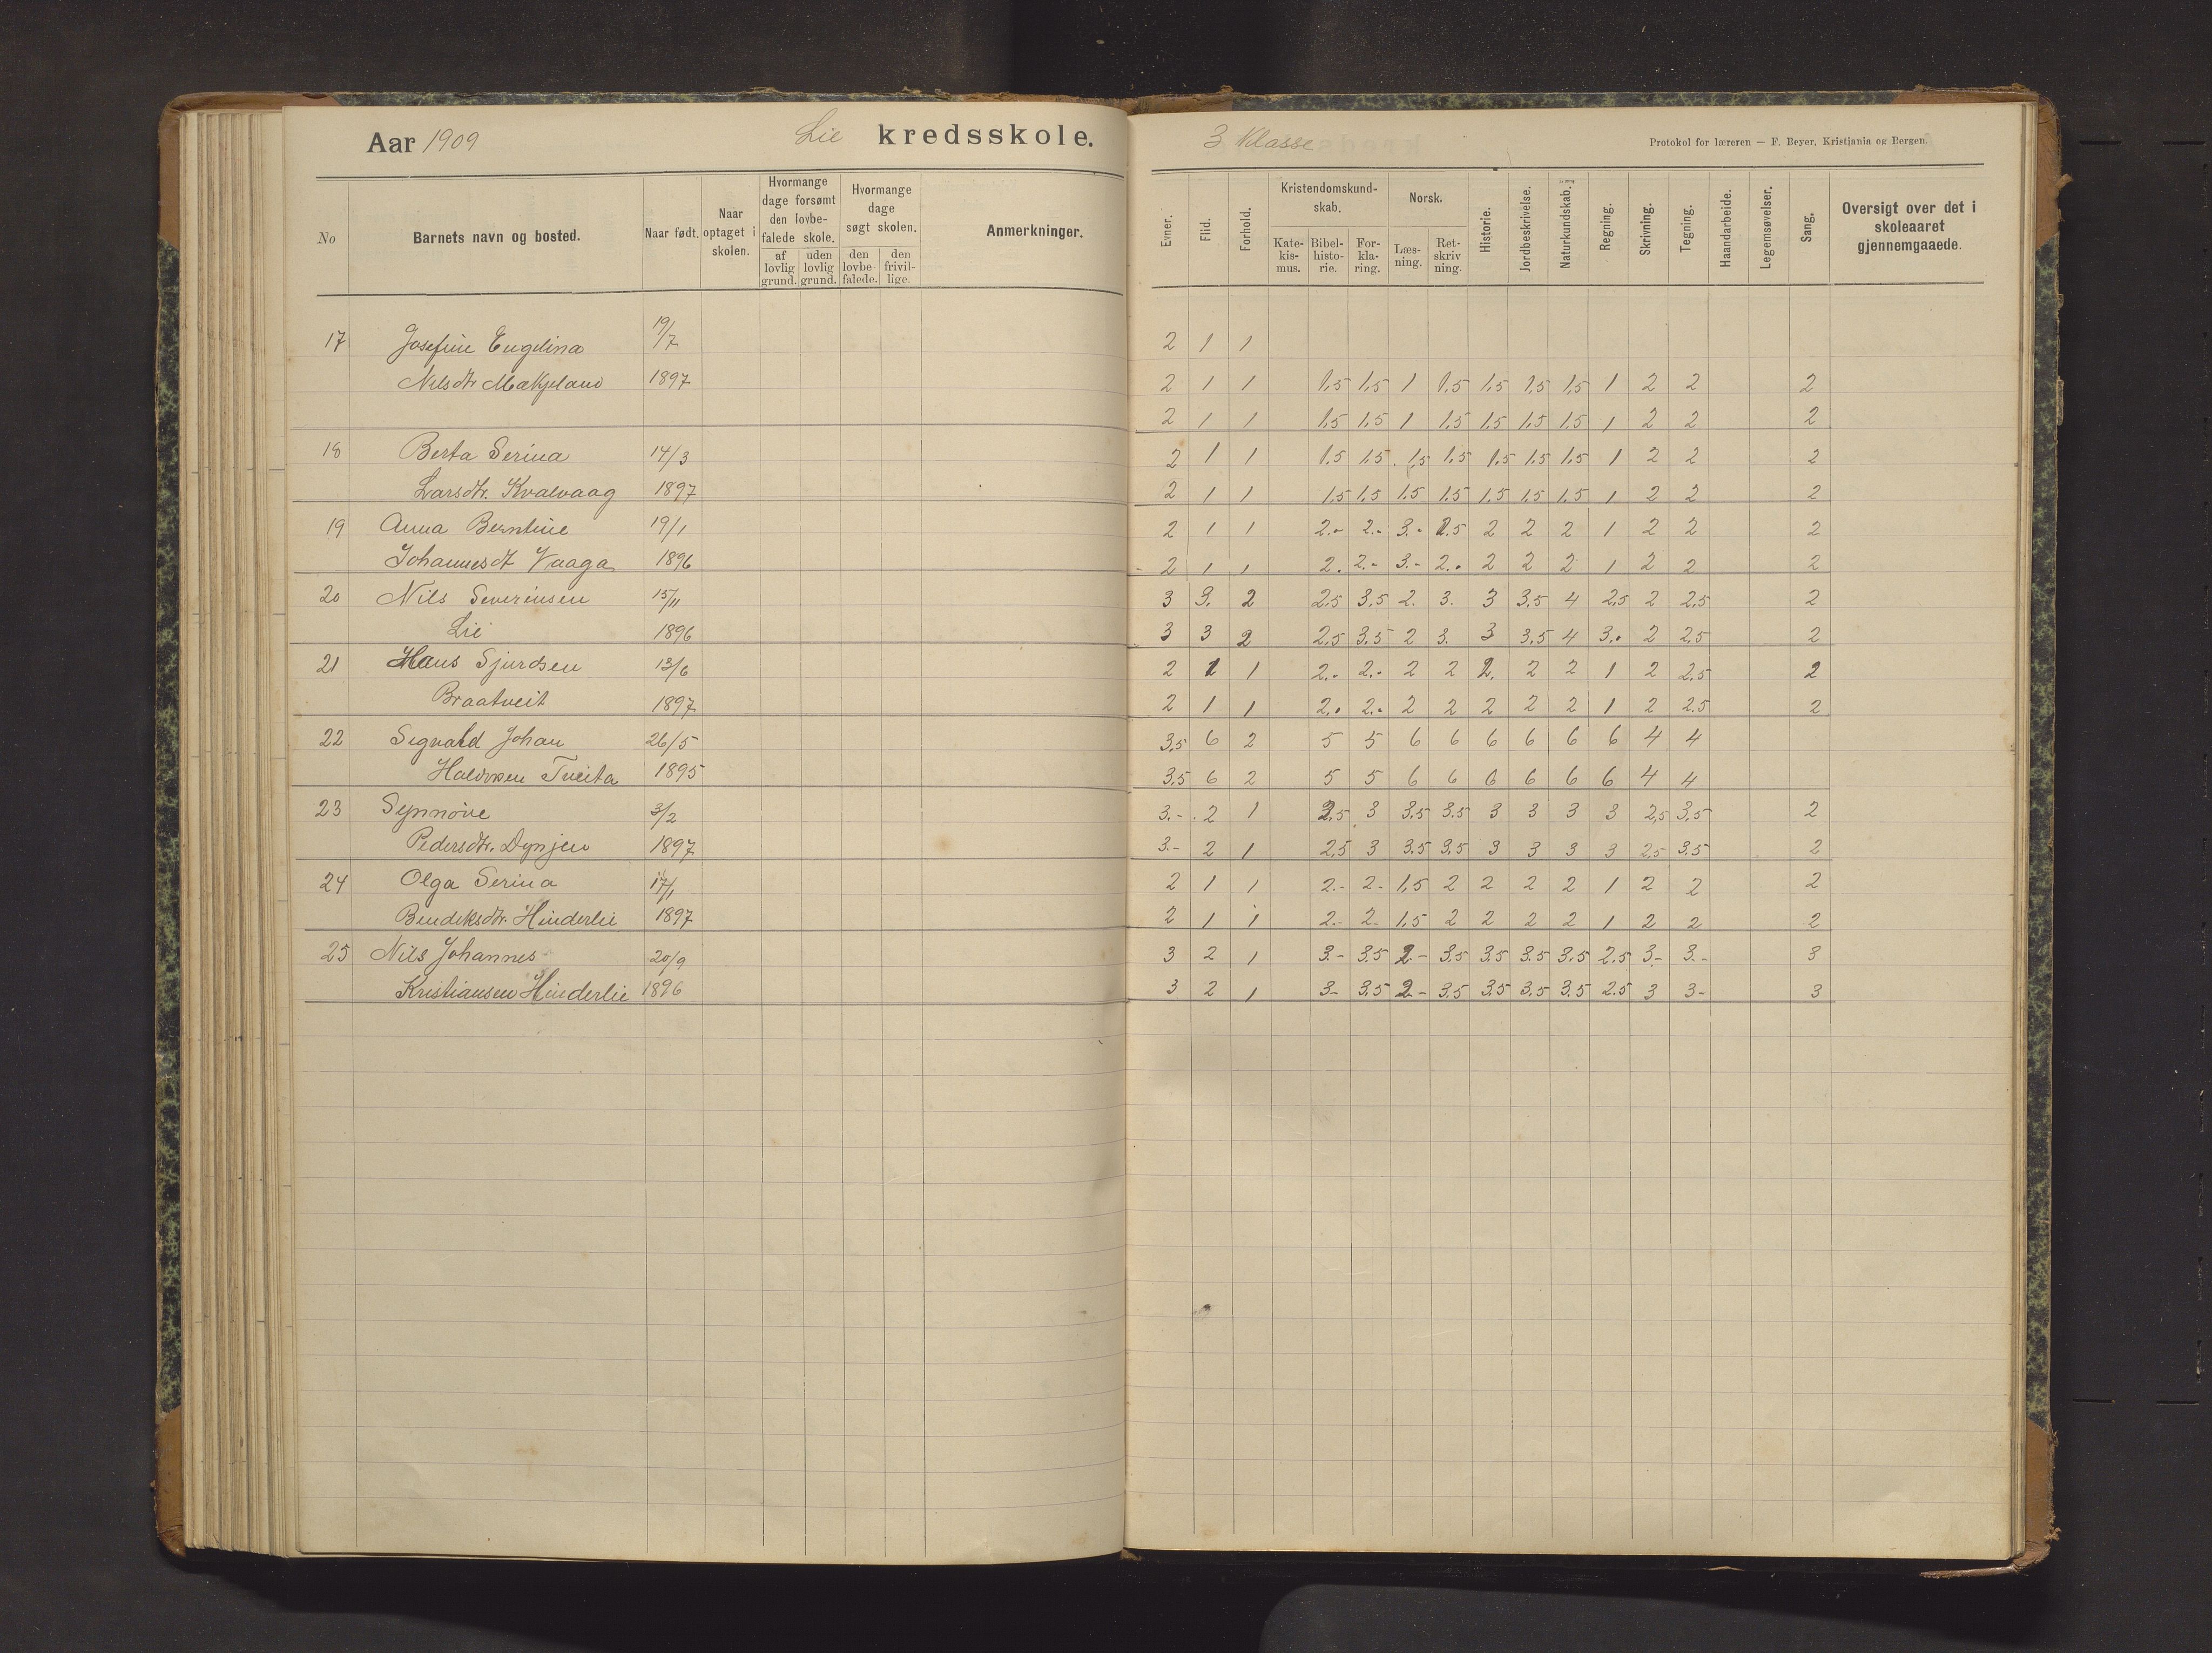 Aar 1909 Lie kredsskole.
3 Klasse Protokol for læreren — F. Beyer, Kristjania og Bergen.
No Barnets navn og bosted. Naar født. Naar optaget i skolen. Hvormange dage forsømt den lovbefalede skole. af lovlig grund. uden lovlig grund. Hvormange dage søgt skolen. den lovbefalede. den frivillige. Anmerkninger.
Evner. Flid. Forhold. Kristendomskundskab. Katekismus. Bibelhistorie. Forklaring. Norsk. Læsning. Retskrivning. Historie. Jordbeskrivelse. Naturkundskab. Regning. Skrivning. Tegning. Haandarbeide. Legemsøvelser. Sang. Oversigt over det i skoleaaret gjennemgaaede.
17 Josefine Engelina 19/7 2 1 1
Nilsdtr Mækjeland 1897 2 1 1 1,5 1,5 1 1,5 1,5 1,5 1,5 1 2 2 2
2 1 1 1,5 1,5 1 1,5 1,5 1,5 1,5 1 2 2 2
18 Berta Serina 14/3 2 1 1 1.5 1.5 1.5 1.5 1.5 1.5 1.5 1 2 2 2
Larsdtr. Kvalvaag 1897 2 1 1 1.5 1.5 1.5 1.5 1.5 1.5 1.5 1 2 2 2
19 Anna Berntine 19/1 2 1 1 2.- 2.- 3.- 2.5 2 2 2 1 2 2 2
Johannesdt Vaaga 1896 2 1 1 2. 2.- 3.- 2. 2 2 2 1 2 2 2
20 Nils Severinsen 15/11 3 3. 2 2.5 3.5 2. 3. 3 3.5 4 2.5 2 2.5 2
Lie 1896 3 3 2 2.5 3.5 2 3. 3 3.5 4 3. 2 2.5 2
21 Hans Sjurdsen 13/6 2 1 1 2.- 2.- 2 2 2. 2 2 1 2 2.5 2
Braatveit 1897 2 1 1 2. 2. 2 2 2 2 2 1 2 2.5 2
22 Sigvald Johan 26/5 3,5 6 2 5 5 6 6 6 6 6 6 4 4
Haldorsen Tveita 1895 3,5 6 2 5 5 6 6 6 6 6 6 4 4
23 Synnøve 3/2 3.- 2 1 2,5 3 3.5 3.5 3 3 3 3 2,5 3,5 2
Pedersdtr. Dynjen 1897 3.- 2 1 2,5 3 3.5 3.5 3 3 3 3 2,5 3.5 2
24 Olga Serina 17/1 2 1 1 2.- 2- 1,5 2 2 2 2 1 2 2 2
Bendiksdtr. Hinderlie 1897 2 1 1 2.- 2- 1,5 2 2 2 2 1 2 2 2
25 Nils Johannes 20/9 3 2 1 3.- 3.5 2- 3.5 3.5 3.5 3.5 2.5 3- 3.- 3
Kristiansen Hinderlie 1896 3 2 1 3- 3.5 2- 3.5 3.5 3.5 3.5 2.5 3 3- 3